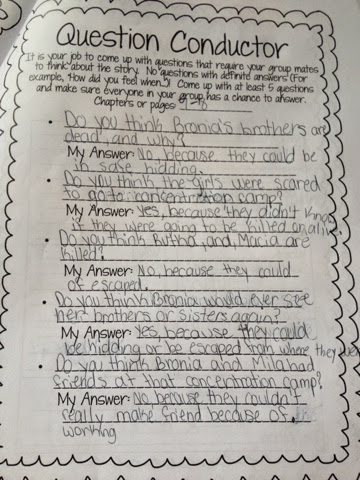 Question Conductor
It is your job to come up with questions that require your group mates
to think about the story. No questions with definite answers (For
example, "How did you feel when...") Come up with at least 5 questions
and make sure everyone in your group has a chance to answer.
Chapters or pages:
• Do you think Bronia's brothers are
dead and why?
My Answer: No, because they could be
in safe hidding.
• Do you think the girls were scared
to go to concentration camp?
My Answer: Yes, because they didn't know
if they were going to be killed or alive.
• Do you think Rutha, and, Macia are
killed?
My Answer: No, because they could
of escaped.
• Do you think Bronia would ever see
her brothers or sisters again?
My Answer: Yes, because they could
be hidding or be escaped from where they
• Do you think Bronia and Mila had
friends at that concentration camp?
My Answer: No because they couldn't
really make friend because of
working